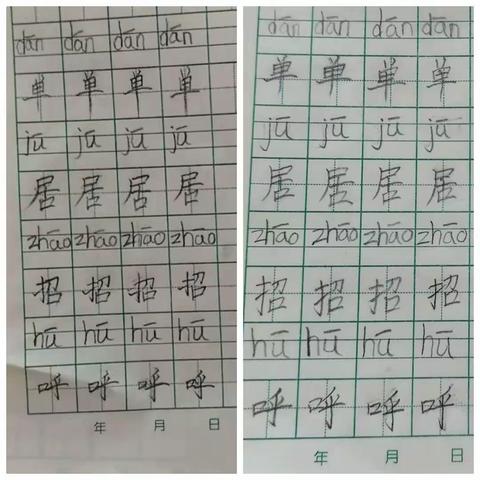 dān dān dān dān
单 单 单 单
jū jū jū jū
居 居 居 居
zhāo zhāo zhāo zhāo
招 招 招 招
hū hū hū hū
呼 呼 呼 呼
年 月 日
dān dān dān dān
单 单 单 单
jū jū jū jū
居 居 居 居
zhāo zhāo zhāo zhāo
招 招 招 招
hū hū hū hū
呼 呼 呼 呼
年 月 日